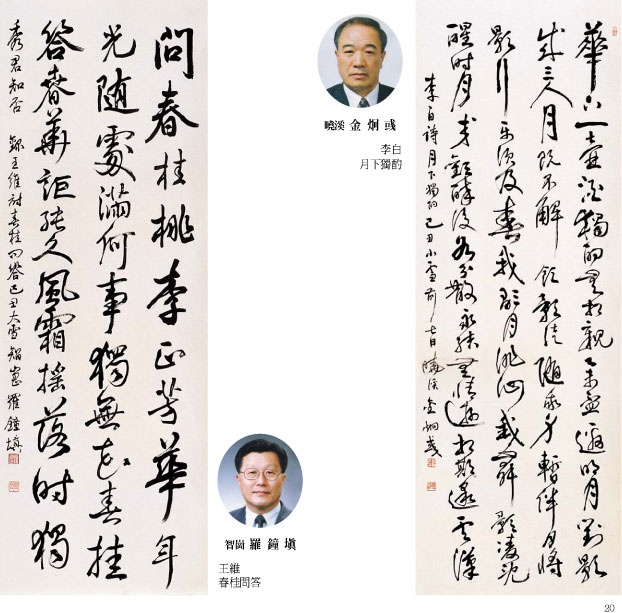 華下一壺酒獨酌無相親擧盃邀明月對影
成三人月旣不解飮影徒隨我身暫伴月將
影行樂須及春我歌月徘徊我舞影凌亂
醒时同交歡醉後各分散永結無情遊相期邈雲漢
李白詩月下獨酌己丑小雪前七日曉溪金炯彧
曉溪 金炯彧
李白
月下獨酌
問春桂桃李正芳華年
光随處滿何事獨無花春桂
答春華詎能久風霜搖落时獨
秀君知否 錄王維詩春桂問答己丑大雪智崗羅鐘塡
智崗 羅鐘塡
王維
春桂問答
20